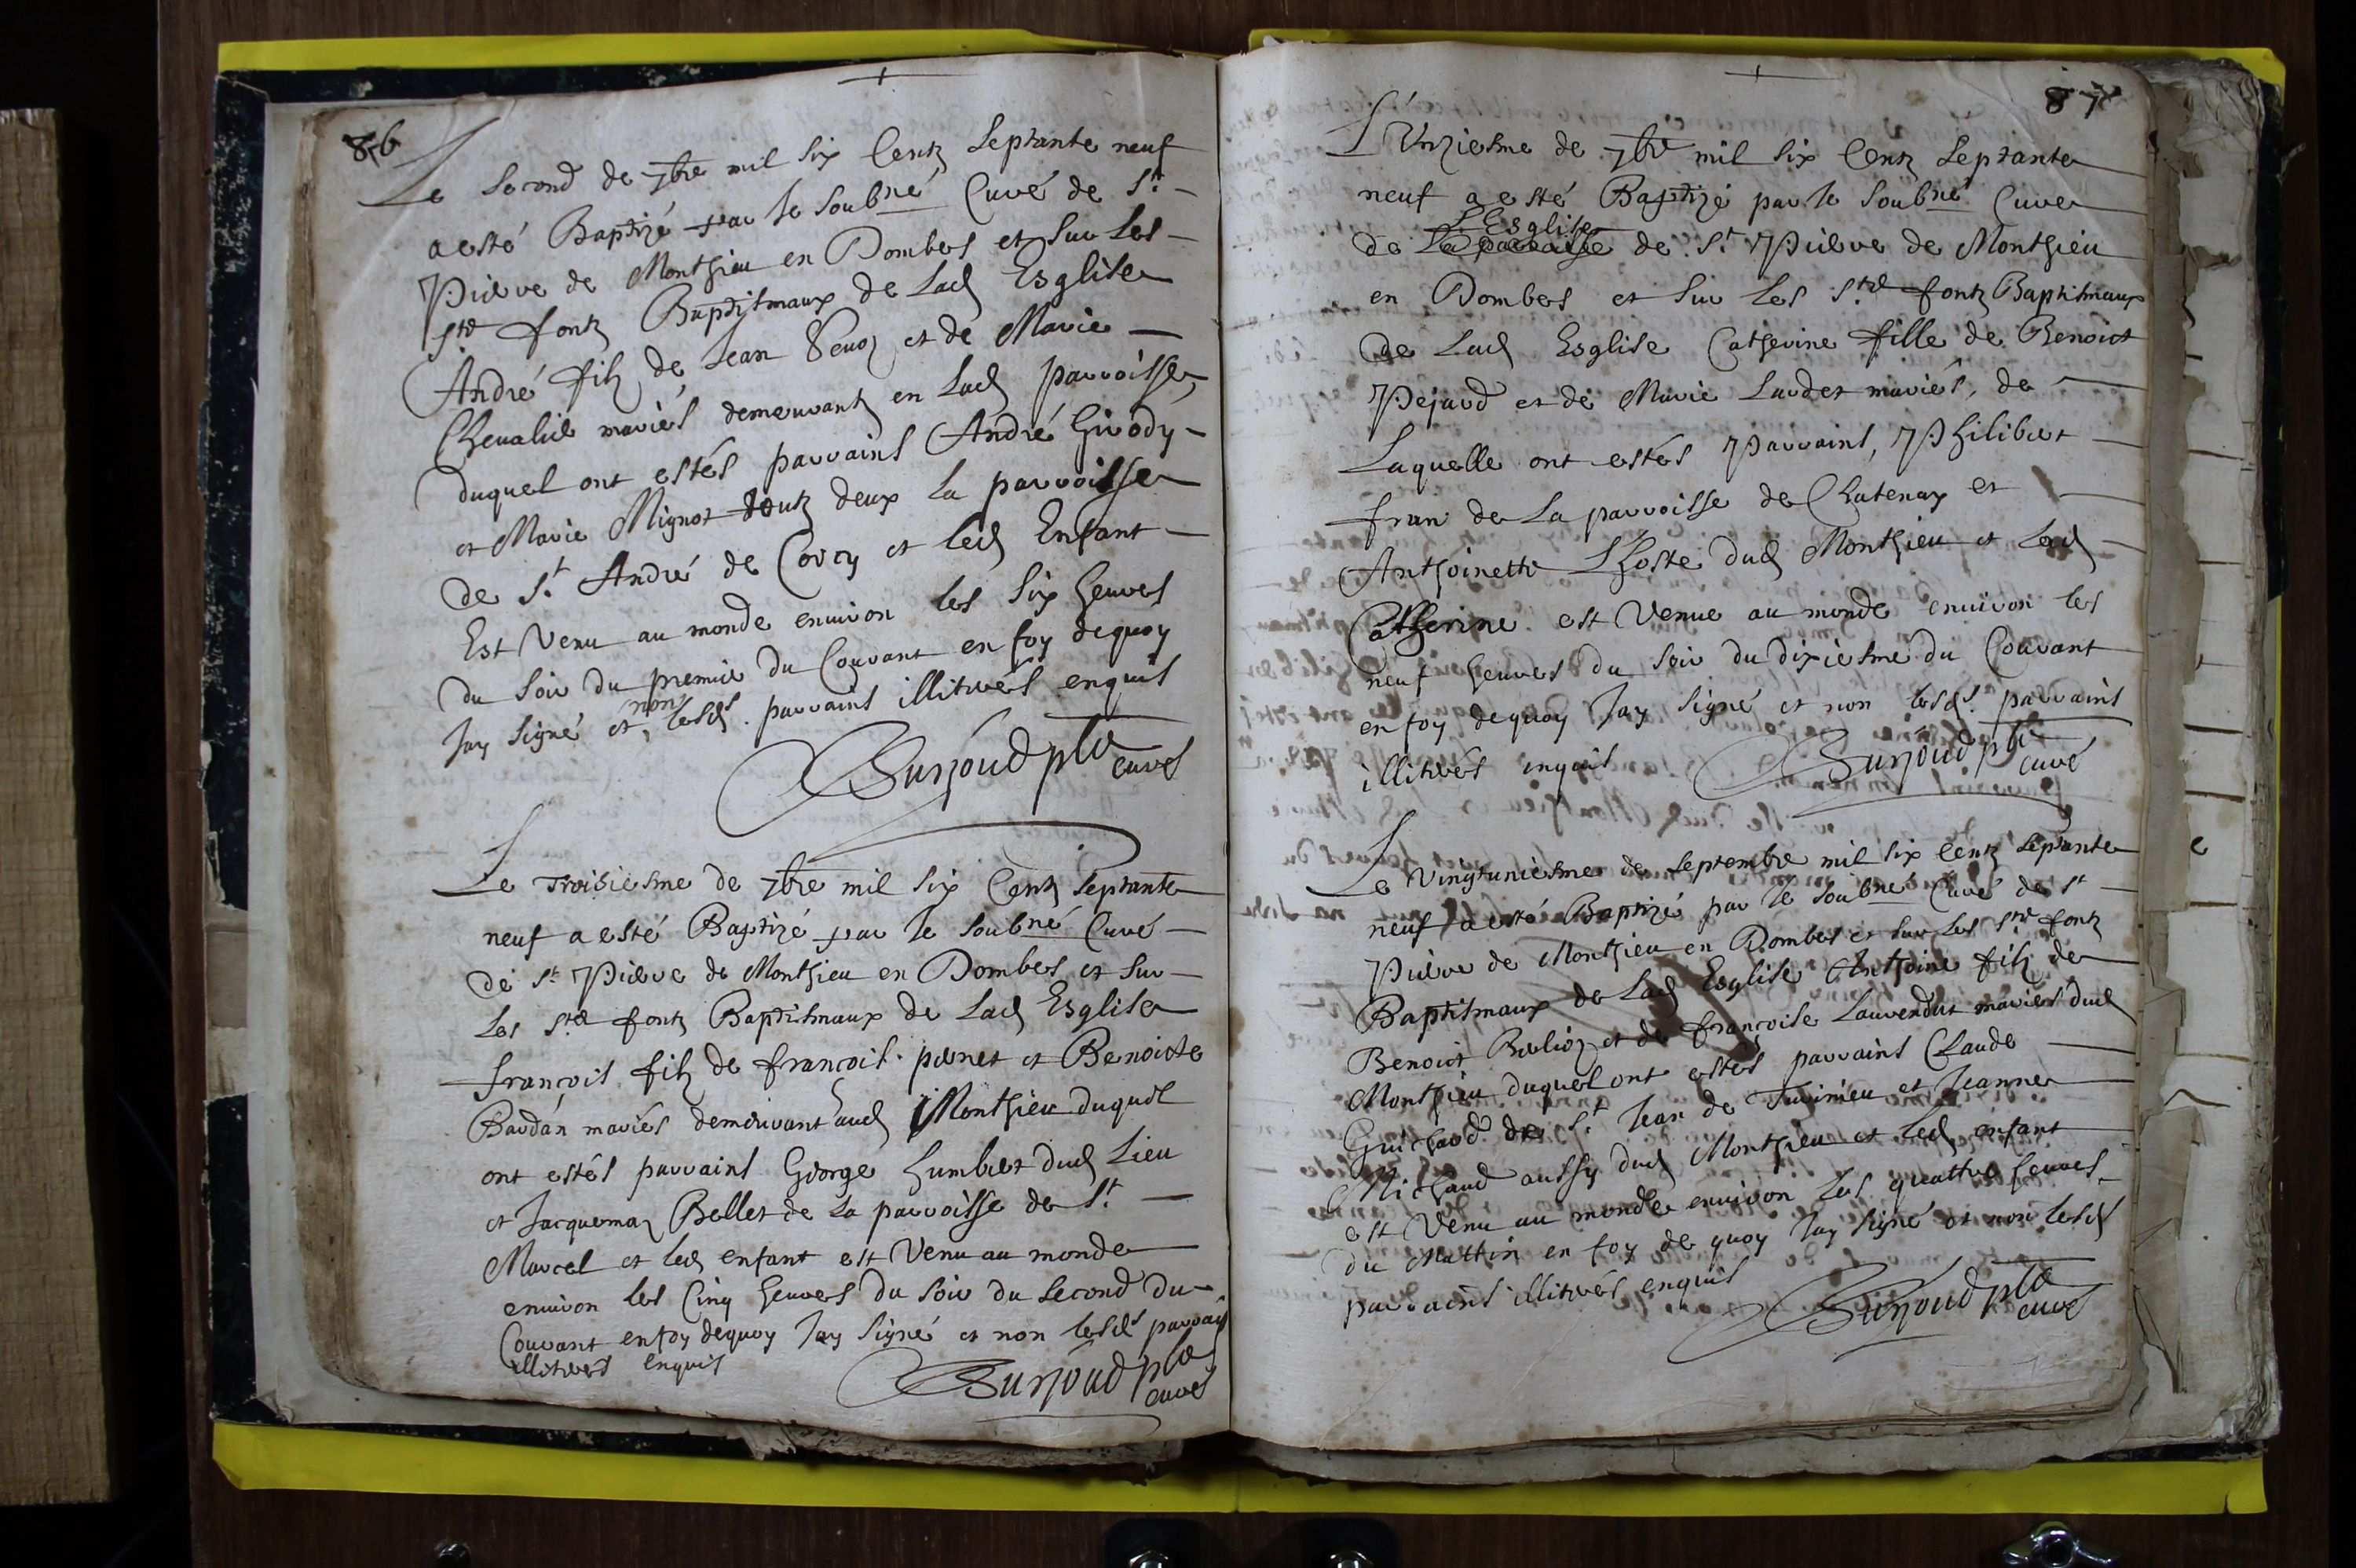 86
Le second de 7bre mil six Centz septante neuf
a esté Baptizé par le soubné Curé de St
Pierre de Monthieu en Dombes et sur les
Stes fontz Baptismaux de Lad Esglise
André filz de Jean et de Marie
Chevalier mariés demeurantz en Lad parroisse,
duquel ont estés parrains André Girody
et Marie Mignot toutz deux la parroisse
de St André de Corcy et led Enfant
Est Venu au monde environ les six heures
du soir du premier du Courant en foy dequoy
Jay signé et non lesds. parrains illitrés enquis
Surjoud pbre
curé
Le Troisiesme de 7bre mil six Centz septante
neuf a esté Baptizé par le soubné Curé
de St Pierre de Monthieu en Dombes et sur
Les Stes fontz Baptismaux de Lad Esglise
françois filz de françois perret et Benoiste
Bardan mariés demeurant aud Monthieu duquel
ont estés parrains George humbert dud Lieu
et Jacquemaz Bellet de La parroisse de St
Marcel et led enfant est Venu au monde
environ les Cinq heures du soir du second du
Courant en foy dequoy Jay signé et non lesds parrains
illitrés enquis
Surjoud pbre
curé
87
L'Unziesme de 7bre mil six Centz septante
neuf a esté Baptizé par le soubné Curé
L'Esglise
de La parroisse de St Pierre de Monthieu
en Dombes et sur Les Stes fontz Baptismaux
de Lad Esglise Catherine fille de Benoict
Pejard et de Marie Lardet mariés, de
Laquelle ont estés Parrains, Philibert
fran de La parroisse de Chatenay et
Anthoinette Lhoste dud Monthieu et Lad
Catherine est Venue au monde environ les
neuf heures du soir du dixiesme du Courant
en foy dequoy Jay signé et non lesds. parrains
illitrés enquis
Surjoud pbre
curé
Le Vingtuniesme de Septembre mil six Centz septante
neuf a esté Baptizé par le soubné Curé de St
Pierre de Monthieu en Dombes et sur Les Stes fontz
Baptismaux de Lad Esglise Anthoine filz de
Benoict Berlioz et de françoise Laurendet mariés dud
Monthieu duquel ont estés parrains Claude
Guichard de St Jean de Turinieu et Jeanne
Michaud aussy dud Monthieu et led enfant
est Venu au monde environ les quattre heures
du Mattin en foy de quoy Jay signé et non lesds
parrains illitrés enquis
Surjoud pbre
curé